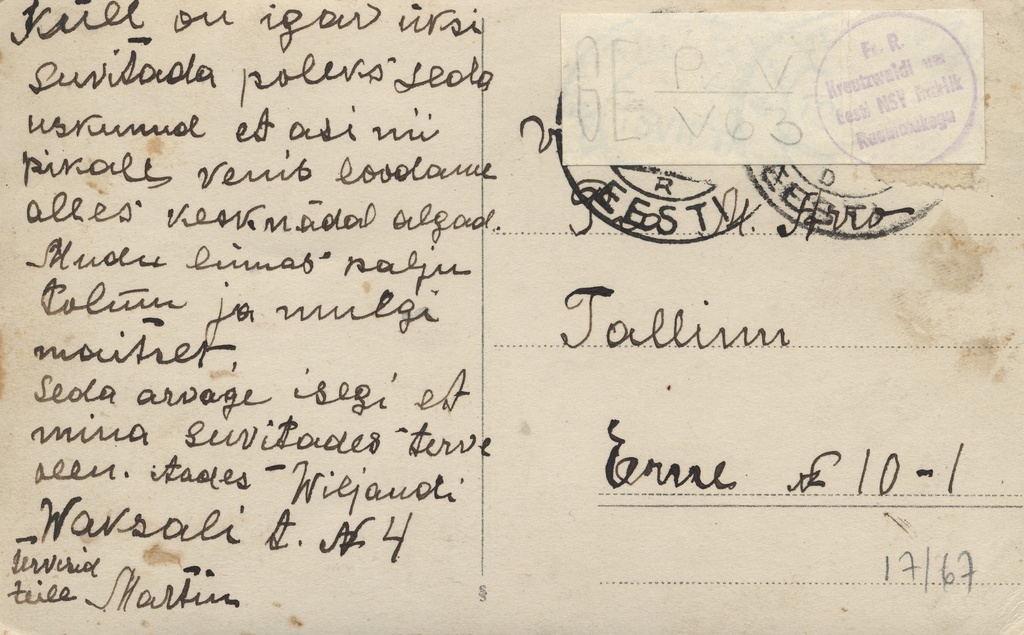 Küll on igav üksi
suvitada poleks seda
uskunud et asi nii
pikale venib loodame
alles kesknädal algad.
Muidu
palju
ja mulgi
maitset.
Seda arvage isegi et
mina suvitades terve
olen. Wiljandi
Waksali t. № 4
tervisid
teile Martin
GE P. V
V 63
Fr. R.
Kreutzwaldi nim
Eesti NSV Riiklik
Raamatukogu
R
EESTI
D
EESTI
Arro
Tallinn
Erne № 10-1
17/67